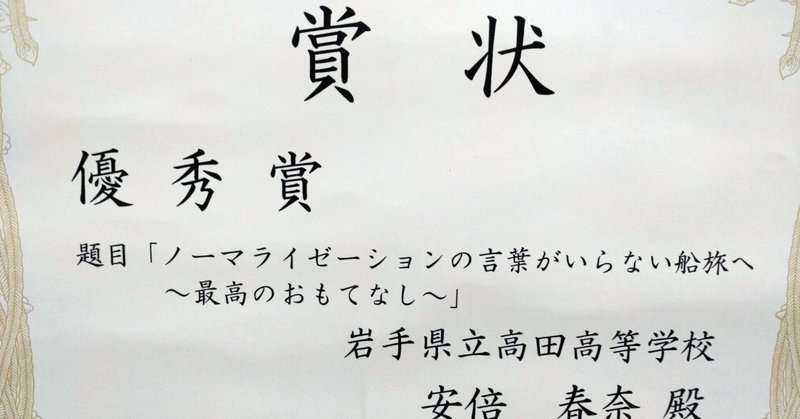 賞状
優秀賞
題目「ノーマライゼーションの言葉がいらない船旅へ
～最高のおもてなし～」
岩手県立高田高等学校
安倍 春奈 殿